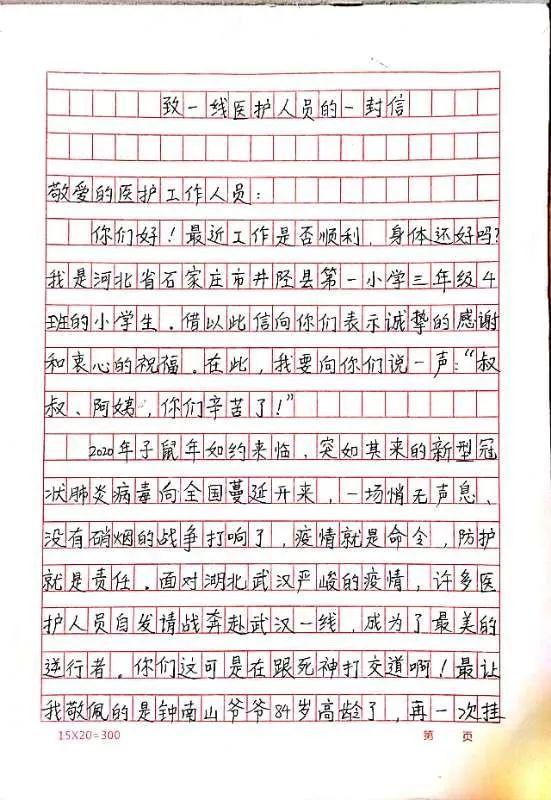 致一线医护人员的一封信
敬爱的医护工作人员：
你们好！最近工作是否顺利，身体还好吗？
我是河北省石家庄市井陉县第一小学三年级4
班的小学生。借以此信向你们表示诚挚的感谢
和衷心的祝福。在此，我要向你们说一声：“叔
叔、阿姨，你们辛苦了！”
2020年子鼠年如约来临，突如其来的新型冠
状肺炎病毒向全国蔓延开来，一场悄无声息、
没有硝烟的战争打响了，疫情就是命令，防护
就是责任。面对湖北武汉严峻的疫情，许多医
护人员自发请战奔赴武汉一线，成为了最美的
逆行者。你们这可是在跟死神打交道啊！最让
我敬佩的是钟南山爷爷84岁高龄了，再一次挂
15X20=300 第 页